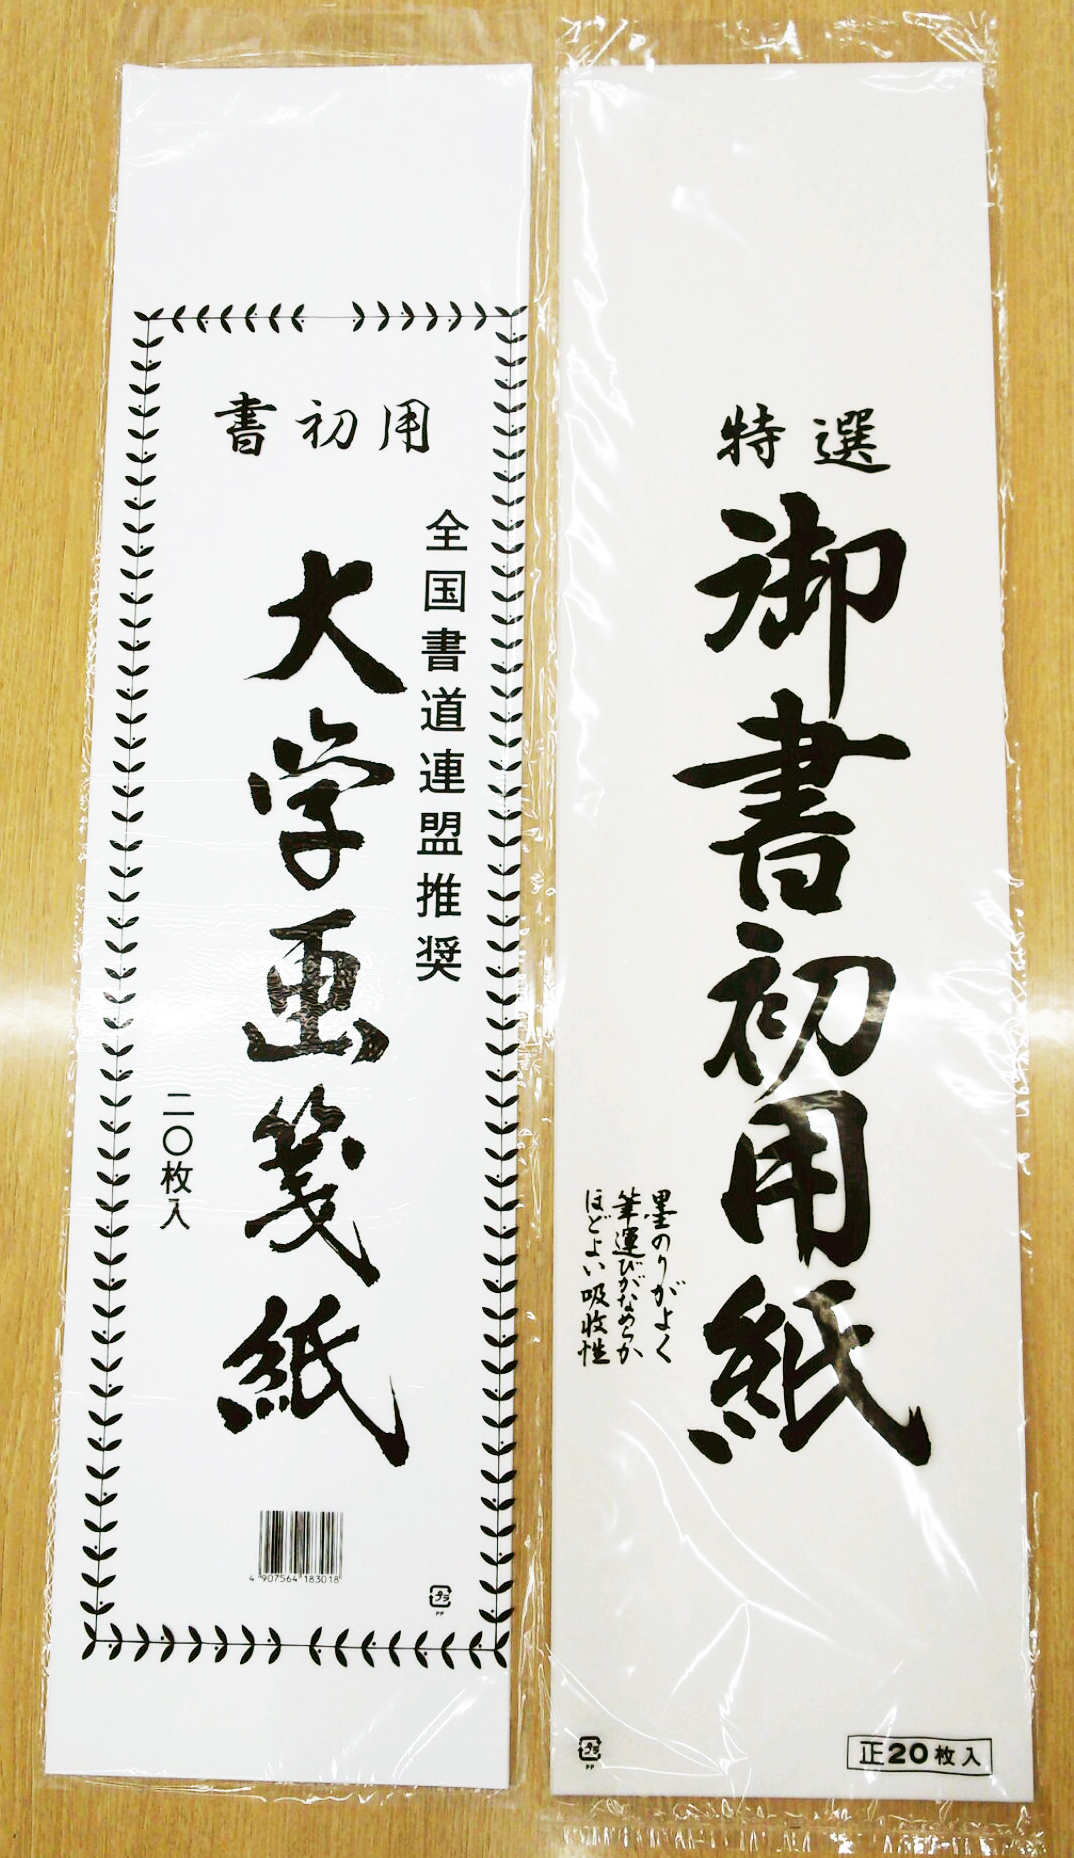 書初用
全国書道連盟推奨
大学画箋紙
二〇枚入
4 907564 183018
プラ
PP
特選
御書初用紙
墨のりがよく
筆運びがなめらか
ほどよい吸收性
プラ
PP
正20枚入